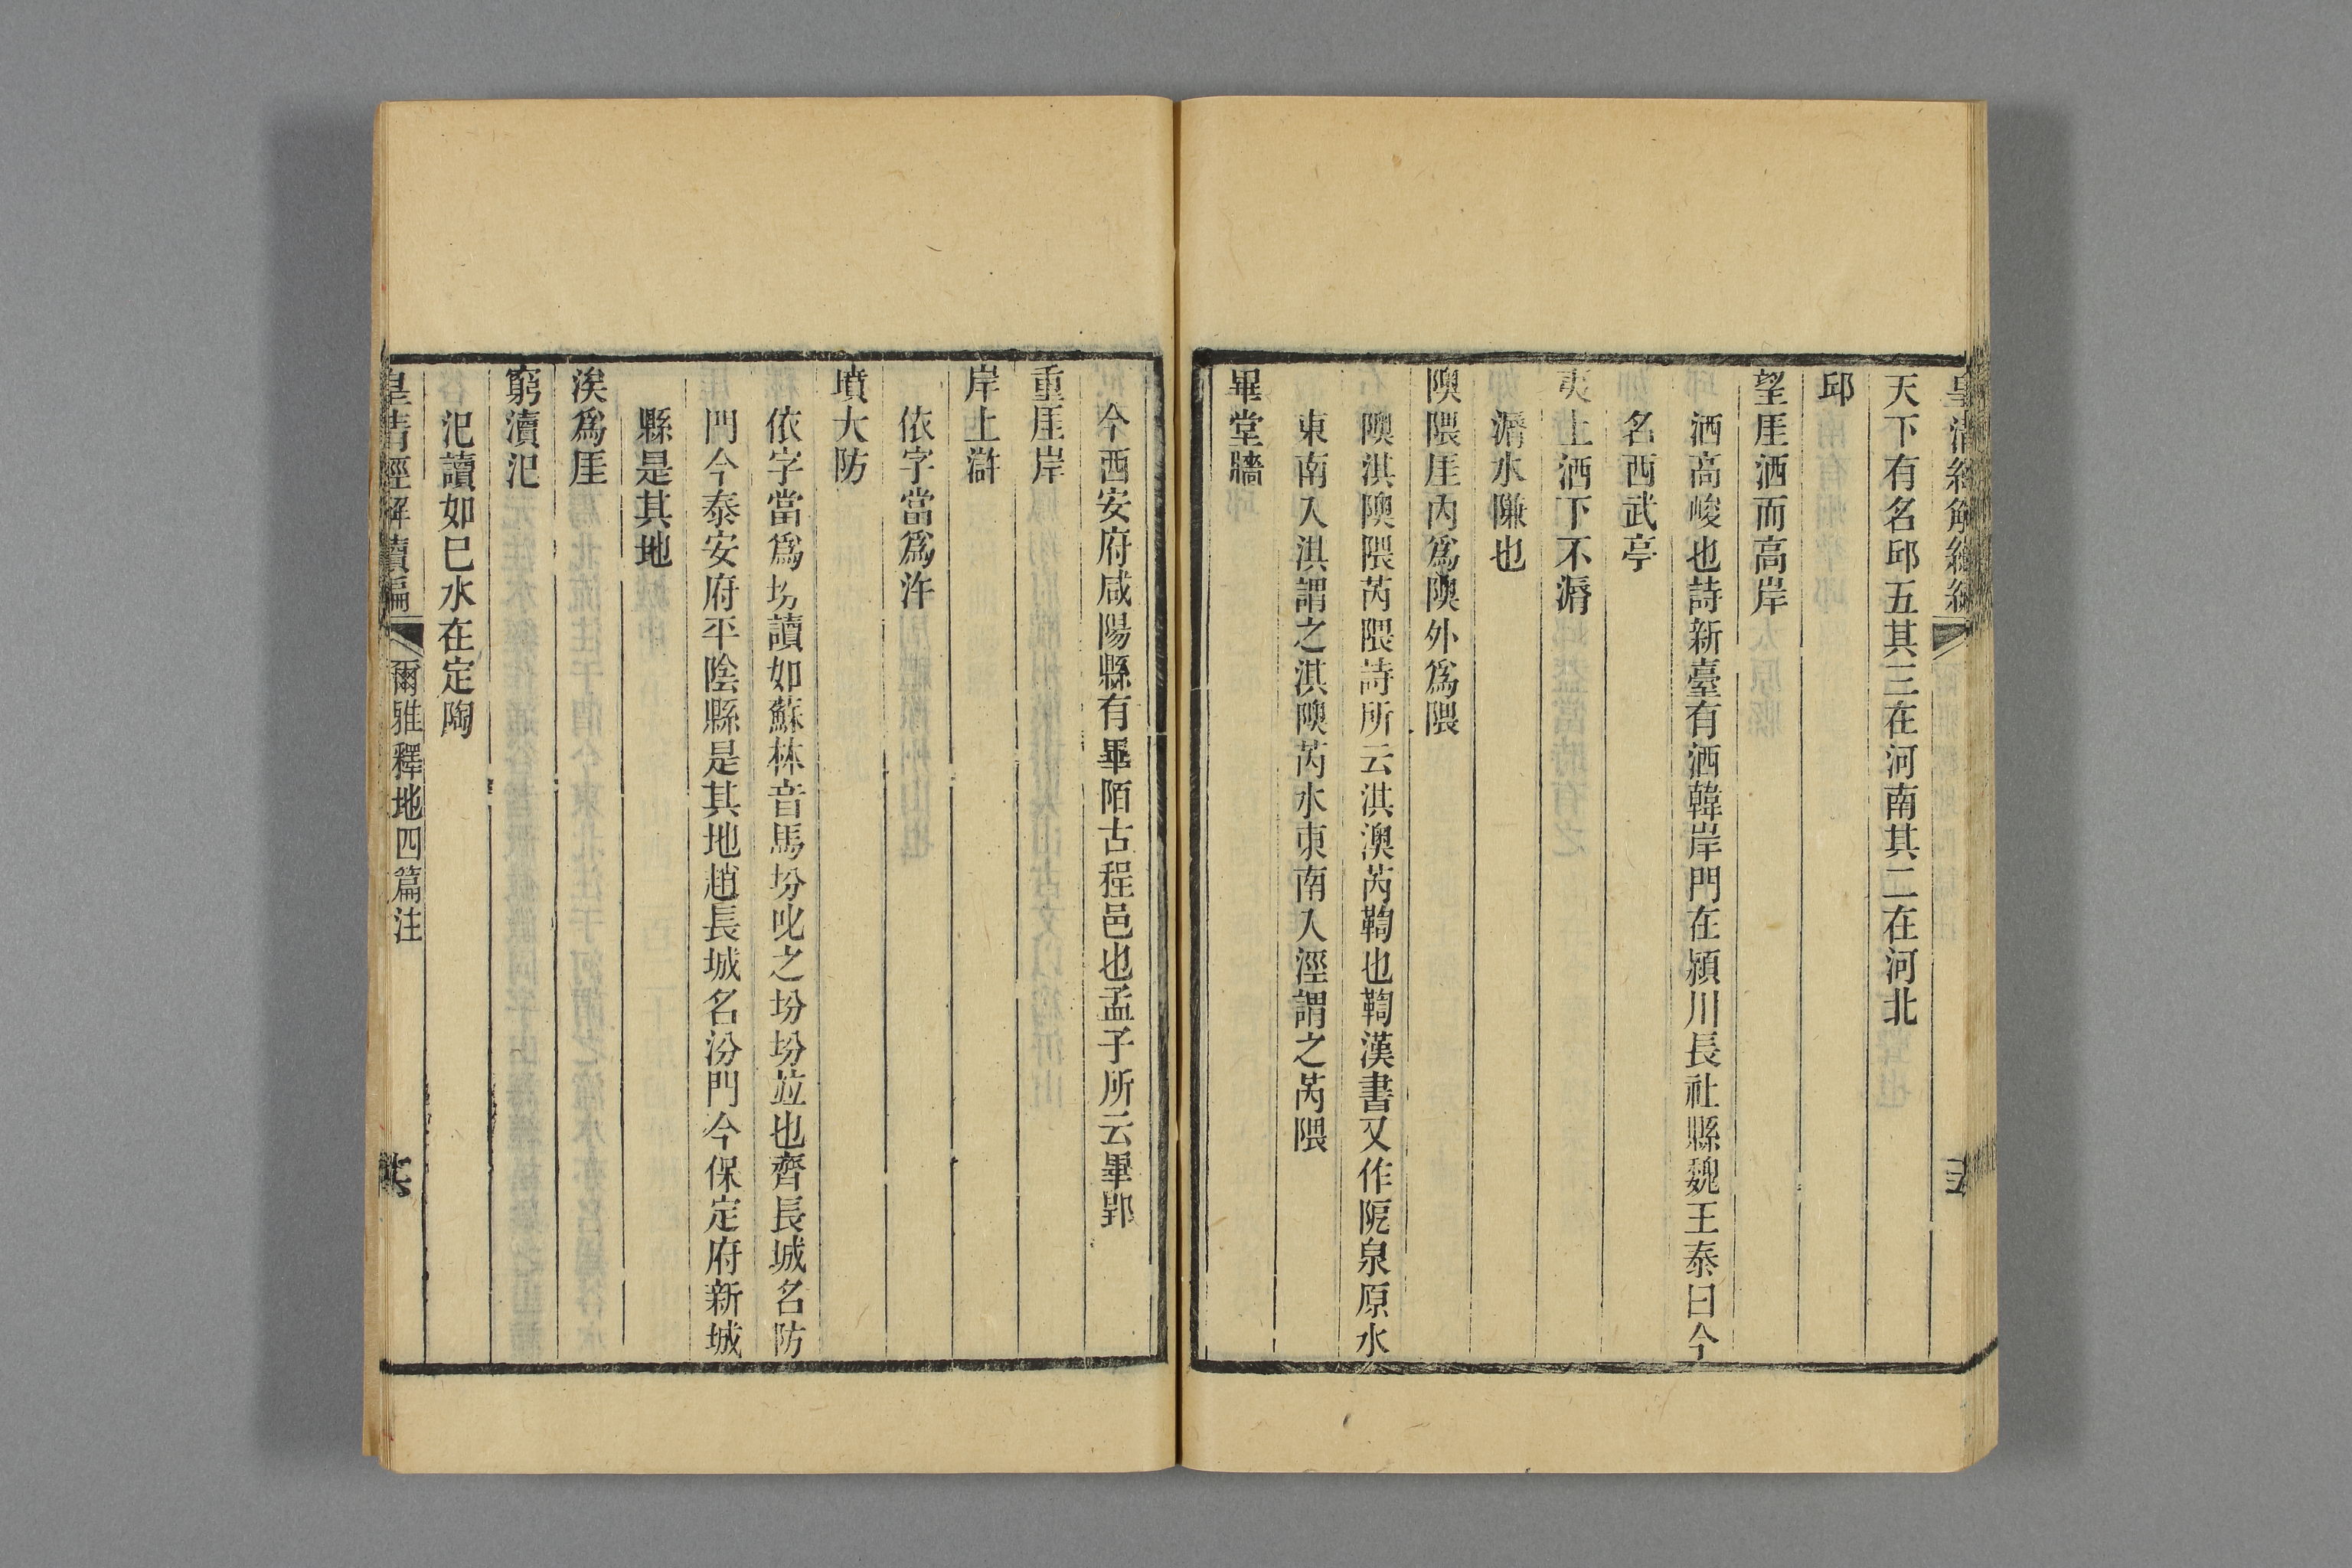 天下有名邱五其三在河南其二在河北
邱
望厓洒而高岸
洒高峻也詩新臺有洒韓岸門在潁川長社縣魏王泰曰今
名西武亭
夷上洒下不漘
漘水隒也
隩隈厓內為隩外為隈
隩淇隩隈芮隈詩所云淇澳芮鞫也鞫漢書又作阸泉原水
東南入淇謂之淇隩芮水東南入涇謂之芮隈
畢堂牆
今西安府咸陽縣有畢陌古程邑也孟子所云畢郢
重厓岸
岸上滸
依字當為汻
墳大防
依字當為坋讀如蘇林音馬坋叱之坋坋竝也齊長城名防
門今泰安府平陰縣是其地趙長城名汾門今保定府新城
縣是其地
涘為厓
窮瀆汜
汜讀如巳水在定陶
皇清經解續編
爾雅釋地四篇注